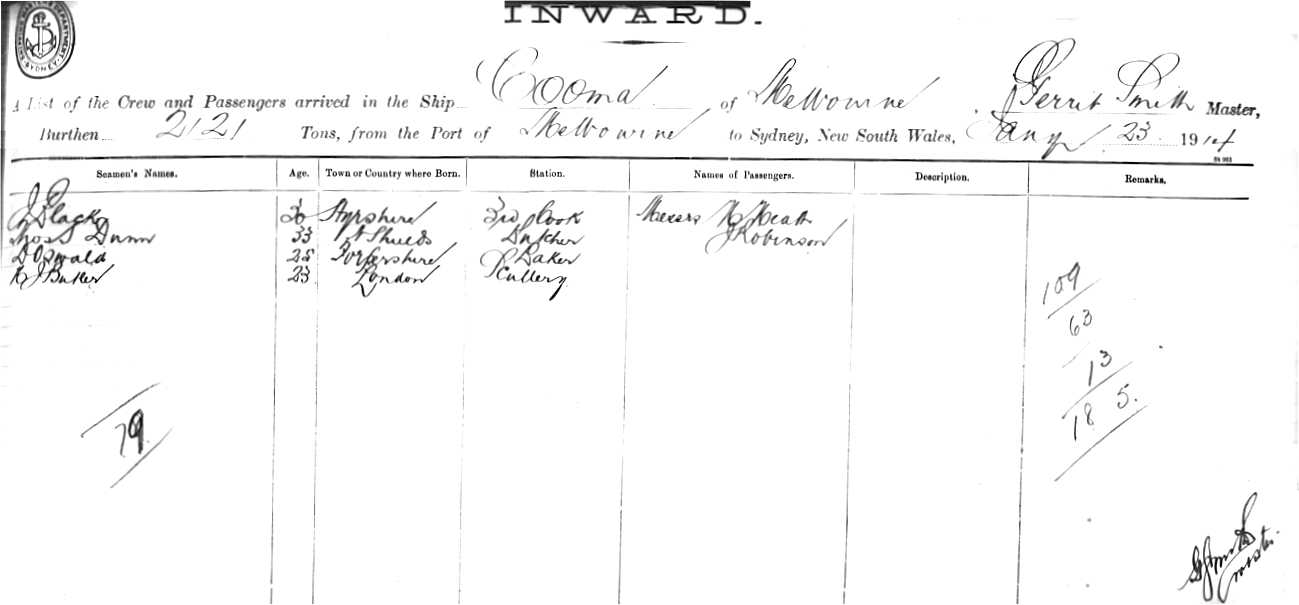 INWARD.
SYDNEY
A List of the Crew and Passengers arrived in the Ship Cooma of Melbourne, Gerrit Smith Master,
Burthen 2121 Tons, from the Port of Melbourne to Sydney, New South Wales, Jany 23 1914
Seamen's Names. Age. Town or Country where Born. Station. Names of Passengers. Description. Remarks.
J Black Ayrshire 3rd Cook Messrs H Heath
Thos S Dunn 33 N Shields Butcher J Robinson
D Oswald 25 Forfarshire Baker
R J Butler 23 London Scullery
109
63
13
185.
79
G Smith
master.